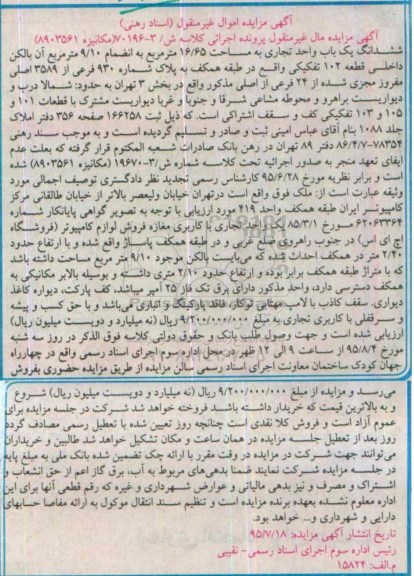 آگهی مزایده اموال غیرمنقول (اسناد رهنی)
آگهی مزایده مال غیرمنقول پرونده اجرائی کلاسه ش/۳-۷۰۱۹۶(مکانیزه ۸۹۰۳۵۶۱)
ششدانگ یک باب واحد تجاری به مساحت ۱۶/۶۵ مترمربع به انضمام ۹/۱۰ مترمربع آن بالکن
داخلی قطعه ۱۰۲ تفکیکی واقع در طبقه همکف به پلاک شماره ۹۳۰ فرعی از ۳۵۸۹ اصلی
مفروز مجزی شده از ۲۴ فرعی از اصلی مذکور واقع در بخش ۳ تهران به حدود: شمالا درب و
دیواریست براهرو و محوطه مشاعی شرقا و جنوبا و غربا دیواریست مشترک با قطعات ۱۰۱ و
۱۰۵ و ۱۰۳ تفکیکی کف و سقف اشتراکی است. که ذیل ثبت ۱۶۶۲۵۸ صفحه ۳۵۶ دفتر املاک
جلد ۱۰۸۸ بنام آقای عباس امینی ثبت و صادر و تسلیم گردیده است و به موجب سند رهنی
۷۸۳۵۴-۸۶/۴/۷ دفتر ۸۹ تهران در رهن بانک صادرات شعبه المکتوم قرار گرفته که بعلت عدم
ایفای تعهد منجر به صدور اجرائیه تحت کلاسه شماره ش/۳-۱۹۶۷۰ (مکانیزه ۸۹۰۳۵۶۱) شده
است و برابر نظریه مورخ ۹۵/۶/۲۸ کارشناس رسمی تجدید نظر دادگستری توصیف اجمالی مورد
وثیقه عبارت است از: ملک فوق واقع است درتهران خیابان ولیعصر بالاتر از خیابان طالقانی مرکز
کامپیوتر ایران طبقه همکف واحد ۴۱۹ مورد ارزیابی با توجه به تصویر گواهی پایانکار شماره
۶۲۰۶۳۳۶۴ مورخ ۸۵/۳/۱ تجاری با کاربری مغازه فروش لوازم کامپیوتر (فروشگاه
اچ ای اس) در جنوب راهروی ضلع غربی و در طبقه همکف پاساژ واقع شده و با ارتفاع حدود
۲/۴۰ متر در همکف احداث شده که می‌بایست بالکن موجود ۹/۱۰ متر مربع مساحت داشته باشد
که با متراژ طبقه همکف برابر بوده و ارتفاع حدود ۲/۱۰ متری داشته و بوسیله بالابر مکانیکی به
همکف دسترسی دارد، واحد مذکور دارای برق تک فاز ۲۵ آمپر میباشد، کف پارکت، دیواره کاغذ
دیواری سقف کاذب با لامپ مهتابی توکار، فاقد پارکینگ و انباری می‌باشد و با حق کسب و پیشه
و سرقفلی با کاربری تجاری به مبلغ ۹/۲۰۰/۰۰۰/۰۰۰ ریال (نه میلیارد و دویست میلیون ریال)
ارزیابی شده است و جهت وصول طلب بانک و حقوق دولتی کلاسه فوق الذکر در روز سه شنبه
مورخ ۹۵/۸/۴ از ساعت ۹ الی ۱۲ ظهر در محل اداره سوم اجرای اسناد رسمی واقع در چهارراه
جهان کودک ساختمان معاونت اجرای اسناد رسمی سالن مزایده از طریق مزایده حضوری بفروش
می‌رسد و مزایده از مبلغ ۹/۲۰۰/۰۰۰/۰۰۰ ریال (نه میلیارد و دویست میلیون ریال) شروع
و به بالاترین قیمت که خریدار داشته باشد فروخته خواهد شد شرکت در جلسه مزایده برای
عموم آزاد است و فروش کلا نقدی است چنانچه روز تعیین شده با تعطیل رسمی مصادف گردد
روز بعد از تعطیل جلسه مزایده در همان ساعت و مکان تشکیل خواهد شد طالبین و خریداران
می‌توانند جهت شرکت در مزایده در وقت مقرر با ارائه چک تضمین شده بانک ملی به مبلغ پایه
در جلسه مزایده شرکت نمایند ضمنا بدهی‌های مربوط به آب، برق گاز اعم از حق انشعاب و
اشتراک و مصرف و نیز بدهی مالیاتی و عوارض شهرداری و غیره که رقم قطعی آنها برای این
اداره معلوم نشده بعهده برنده مزایده است و تنظیم سند انتقال موکول به ارائه مفاصا حسابهای
دارایی و شهرداری و... خواهد بود.
تاریخ انتشار آگهی مزایده: ۹۵/۷/۱۸
رئیس اداره سوم اجرای اسناد رسمی- نقیبی
م.الف: ۱۵۸۲۴